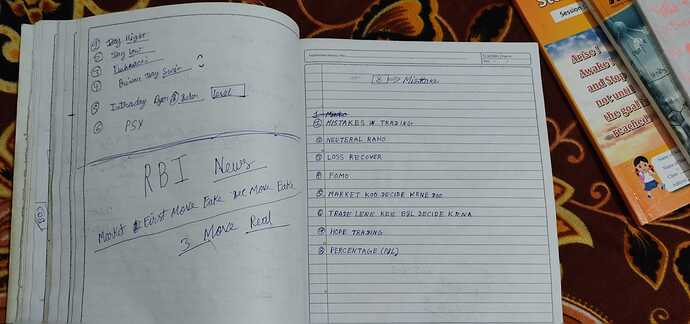 ① Day Hight
② Day Low
③
④ Previous Day Swing
⑤ Intraday level
⑥ PSY
RBI News
Market First Move Fake Sec Move Fake
3 Move Real
Mistake
① MISTAKES IN TRADING
② NEUTERAL RAHO
③ LOSS RECOVER
④ FOMO
⑤ MARKET KOO DECIDE KRNE DOO
⑥ TRADE LENE KEE DECIDE KRNA
⑦ HOPE TRADING
⑧ PERCENTAGE (P/L)
Session
Arise
Awake
and Stop
not until
the goal is
reached